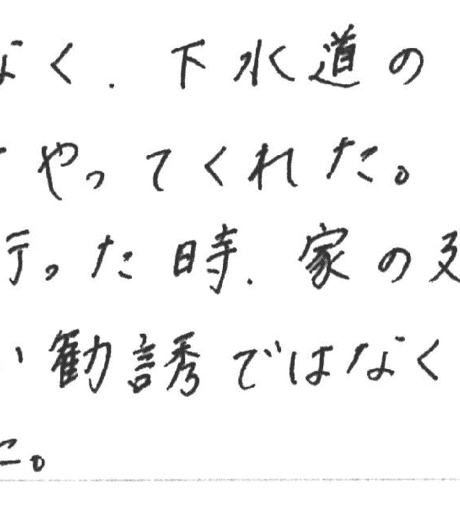 なく、下水道の
やってくれた。
行った時、家の
い勧誘ではなく
た。